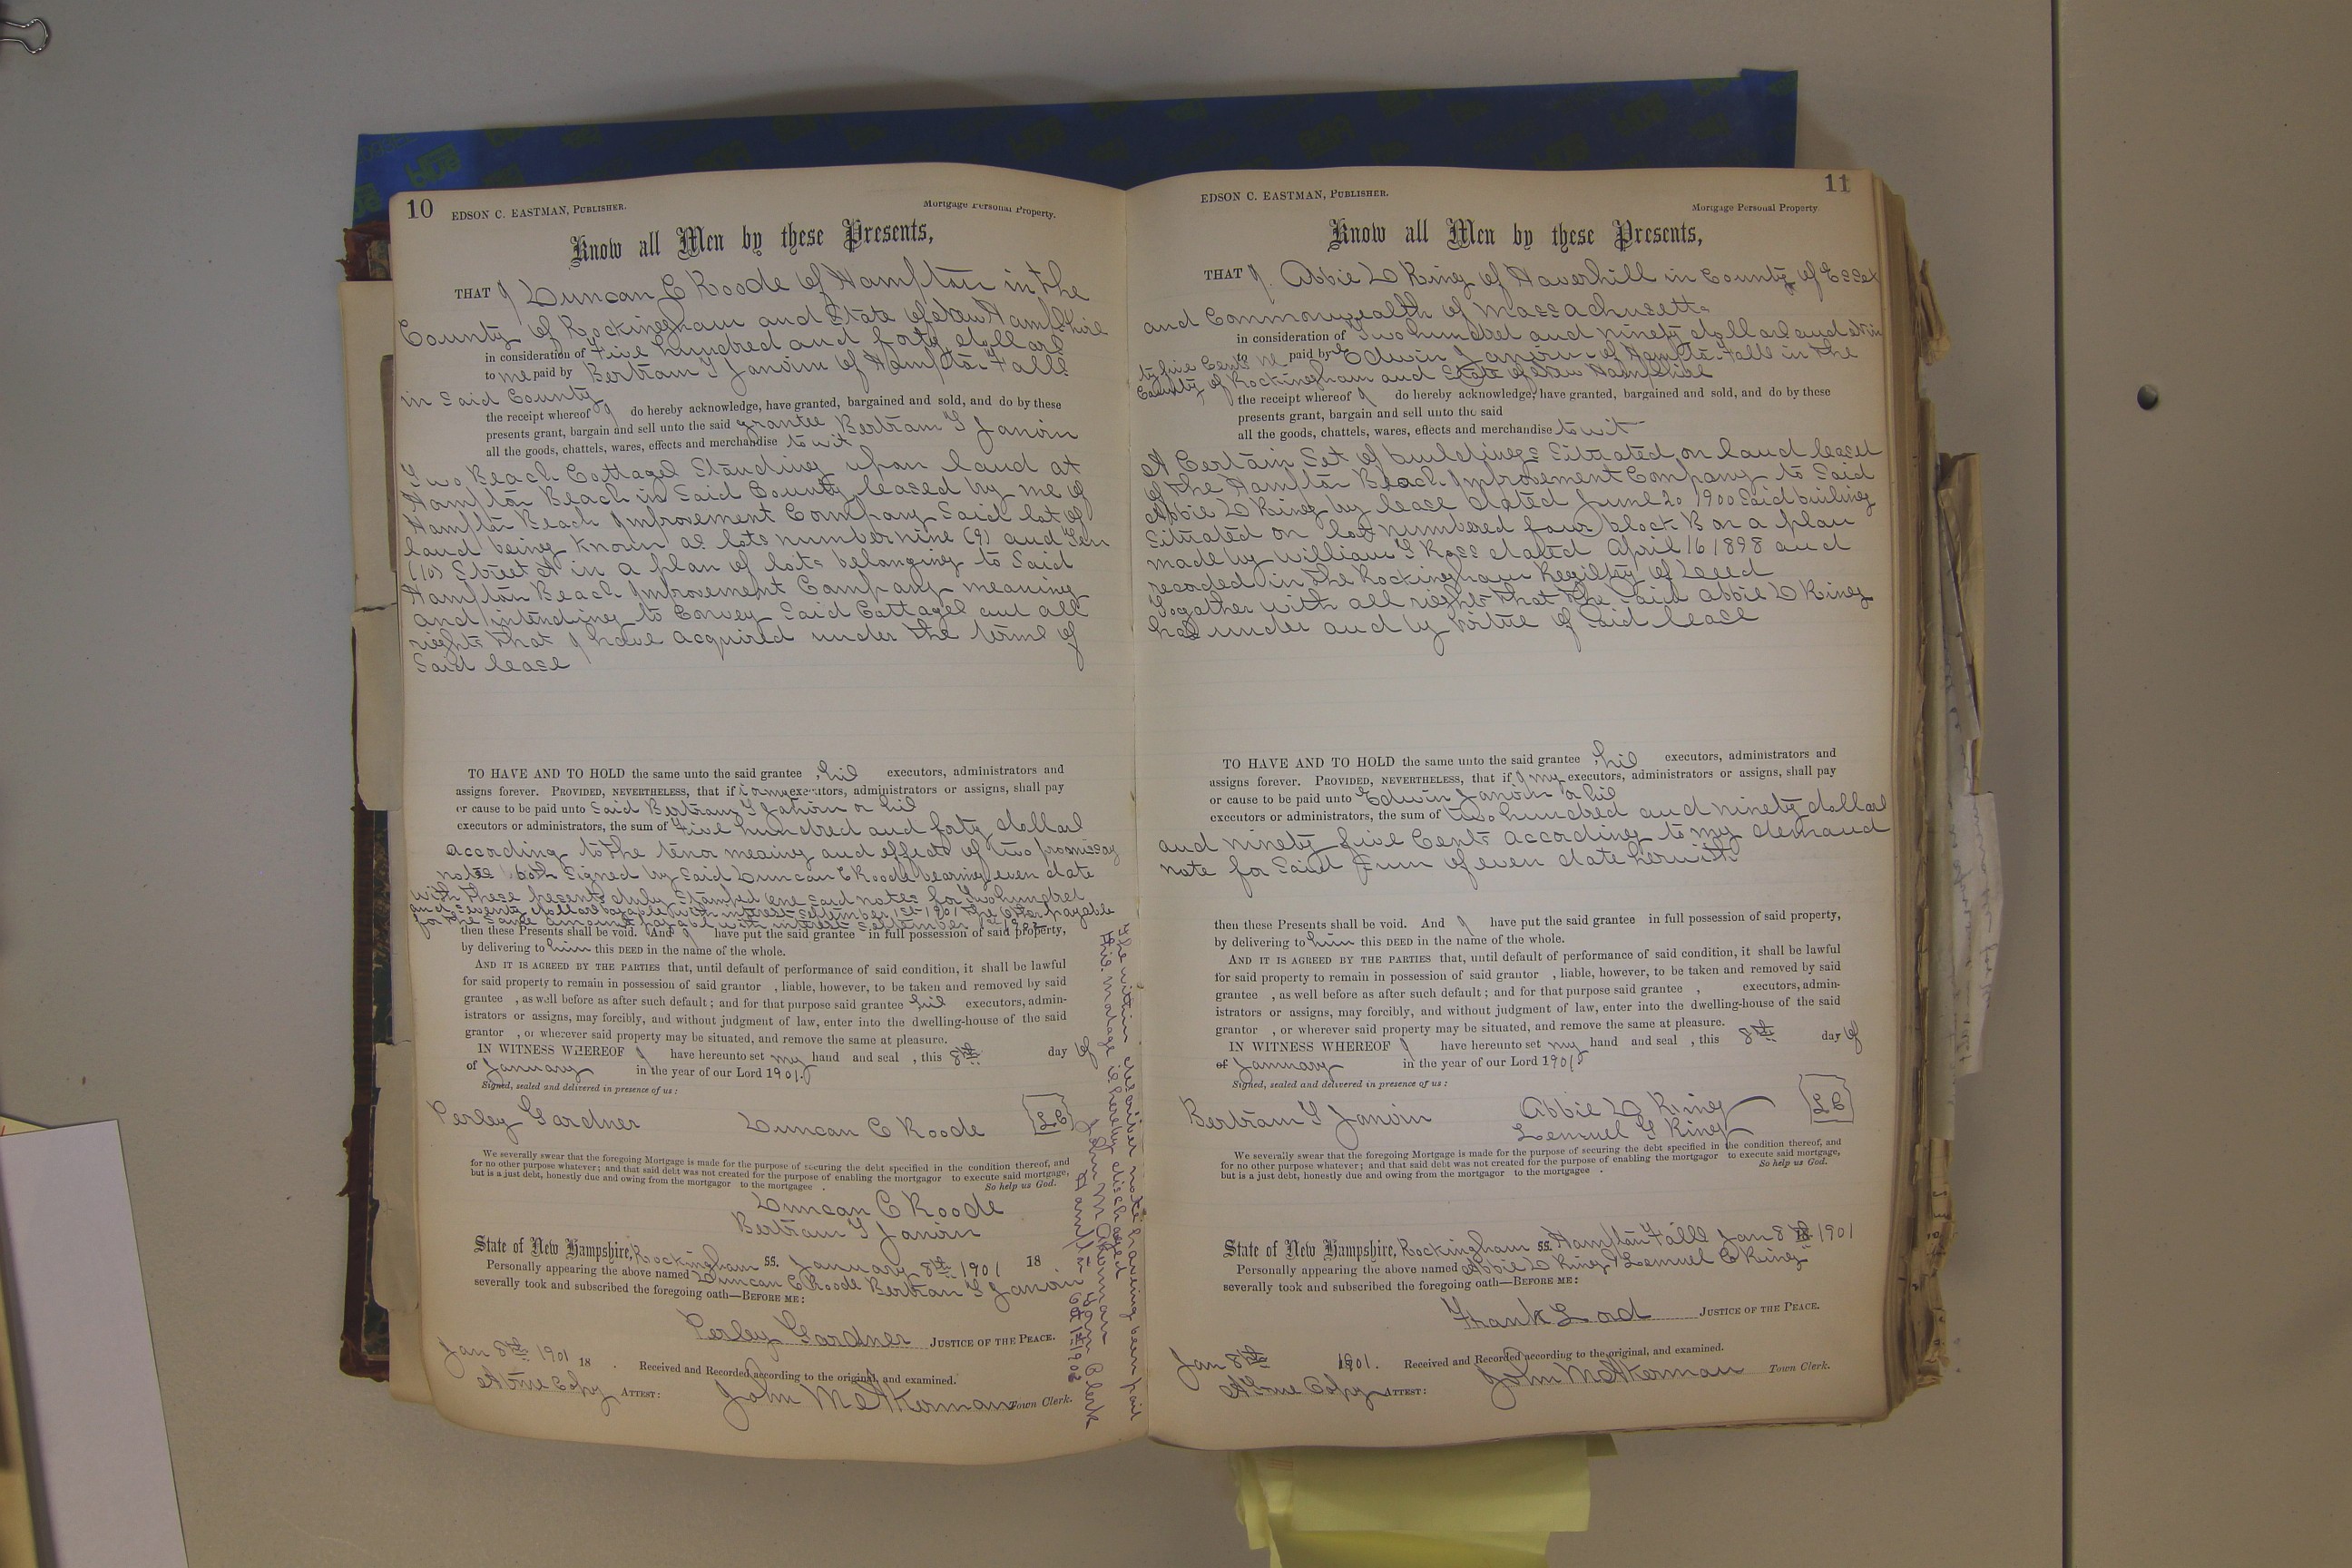 10 EDSON C. EASTMAN, PUBLISHER. Mortgage Personal Property.
Know all Men by these Presents,
THAT I Duncan C Roode of Hampton in the
County of Rockingham and State of New Hampshire
in consideration of Five hundred and forty dollars
to me paid by Bertram T Janvrin of Hampton Falls
in Said County
the receipt whereof I do hereby acknowledge, have granted, bargained and sold, and do by these
presents grant, bargain and sell unto the said grantee Bertram T Janvrin
all the goods, chattels, wares, effects and merchandise to wit
Two Beach Cottages Standing upon land at
Hampton Beach in Said County leased by me of
Hampton Beach Improvement Company Said lot of
land being known as lots number nine (9) and Ten
(10) Street A in a plan of lots belonging to Said
Hampton Beach Improvement Company meaning
and intending to Convey Said Cottages and all
rights that I have acquired under the terms of
Said lease
TO HAVE AND TO HOLD the same unto the said grantee , his executors, administrators and
assigns forever. PROVIDED, NEVERTHELESS, that if I or my executors, administrators or assigns, shall pay
or cause to be paid unto Said Bertram T Janvrin or his
executors or administrators, the sum of Five hundred and forty dollars
according to the tenor meaning and effects of two promissay
notes both Signed by Said Duncan C Roode bearing even date
with these presents duly Stamped One Said notes for Two hundred
and Seventy dollars payable with interest September 1st 1901 the other payable
for the same amount payable with interest September 1st 1902
then these Presents shall be void. And I have put the said grantee in full possession of said property,
by delivering to him this DEED in the name of the whole.
AND IT IS AGREED BY THE PARTIES that, until default of performance of said condition, it shall be lawful
for said property to remain in possession of said grantor , liable, however, to be taken and removed by said
grantee , as well before as after such default; and for that purpose said grantee his executors, admin-
istrators or assigns, may forcibly, and without judgment of law, enter into the dwelling-house of the said
grantor , or wherever said property may be situated, and remove the same at pleasure.
IN WITNESS WHEREOF I have hereunto set my hand and seal , this 8th day of
of January in the year of our Lord 1901.
Signed, sealed and delivered in presence of us:
Perley Gardner Duncan C Roode LS
We severally swear that the foregoing Mortgage is made for the purpose of securing the debt specified in the condition thereof, and
for no other purpose whatever; and that said debt was not created for the purpose of enabling the mortgagor to execute said mortgage,
but is a just debt, honestly due and owing from the mortgagor to the mortgagee . So help us God.
Duncan C Roode
Bertram T Janvrin
State of New Hampshire, Rockingham ss. January 8th 1901 18
Personally appearing the above named Duncan C Roode Bertram T Janvrin
severally took and subscribed the foregoing oath—BEFORE ME:
Perley Gardner JUSTICE OF THE PEACE.
Jan 8th 1901 18 . Received and Recorded according to the original, and examined.
A True Copy ATTEST: John M Akerman Town Clerk.
The within described note having been paid
this mortage is hereby discharged
John M Akerman Town Clerk
Hampton Oct 1st 1902
EDSON C. EASTMAN, PUBLISHER. 11
Mortgage Personal Property
Know all Men by these Presents,
THAT I. Abbie D King of Haverhill in County of Essex
and Commonwealth of Massachusetts
in consideration of Two hundred and ninety dollars and Nin
ty five Cents to me paid by Edwin Janvrin of Hampton Falls in the
County of Rockingham and State of New Hampshire
the receipt whereof I do hereby acknowledge, have granted, bargained and sold, and do by these
presents grant, bargain and sell unto the said
all the goods, chattels, wares, effects and merchandise to wit
A Certain Set of buildings Situated on land leased
of the Hampton Beach Improvement Company to Said
Abbie D King by lease dated June 20 1900 Said builing
Situated on lot numbered four block B on a plan
made by William T Ross dated April 16 1898 and
recorded in the Rockingham Regilsty of Deed
Togather with all rights that the Said Abbie D King
has under and by virtue of Said lease
TO HAVE AND TO HOLD the same unto the said grantee , his executors, administrators and
assigns forever. PROVIDED, NEVERTHELESS, that if I my executors, administrators or assigns, shall pay
or cause to be paid unto Edwin Janvrin or his
executors or administrators, the sum of two hundred and ninety dollars
and ninety five Cents according to my demand
note for Said Sum of even date herwith
then these Presents shall be void. And I have put the said grantee in full possession of said property,
by delivering to him this DEED in the name of the whole.
AND IT IS AGREED BY THE PARTIES that, until default of performance of said condition, it shall be lawful
for said property to remain in possession of said grantor , liable, however, to be taken and removed by said
grantee , as well before as after such default; and for that purpose said grantee , executors, admin-
istrators or assigns, may forcibly, and without judgment of law, enter into the dwelling-house of the said
grantor , or wherever said property may be situated, and remove the same at pleasure.
IN WITNESS WHEREOF I have hereunto set my hand and seal , this 8th day of
of January in the year of our Lord 1901.
Signed, sealed and delivered in presence of us:
Bertram T Janvrin Abbie D King LS
Lemuel T King
We severally swear that the foregoing Mortgage is made for the purpose of securing the debt specified in the condition thereof, and
for no other purpose whatever; and that said debt was not created for the purpose of enabling the mortgagor to execute said mortgage,
but is a just debt, honestly due and owing from the mortgagor to the mortgagee . So help us God.
State of New Hampshire, Rockingham ss. Hampton Falls Jan 8th 1901
Personally appearing the above named Abbie D King & Lemuel C King
severally took and subscribed the foregoing oath—BEFORE ME:
Frank Lord JUSTICE OF THE PEACE.
Jan 8th 1901. Received and Recorded according to the original, and examined.
A True Copy ATTEST: John M Akerman Town Clerk.